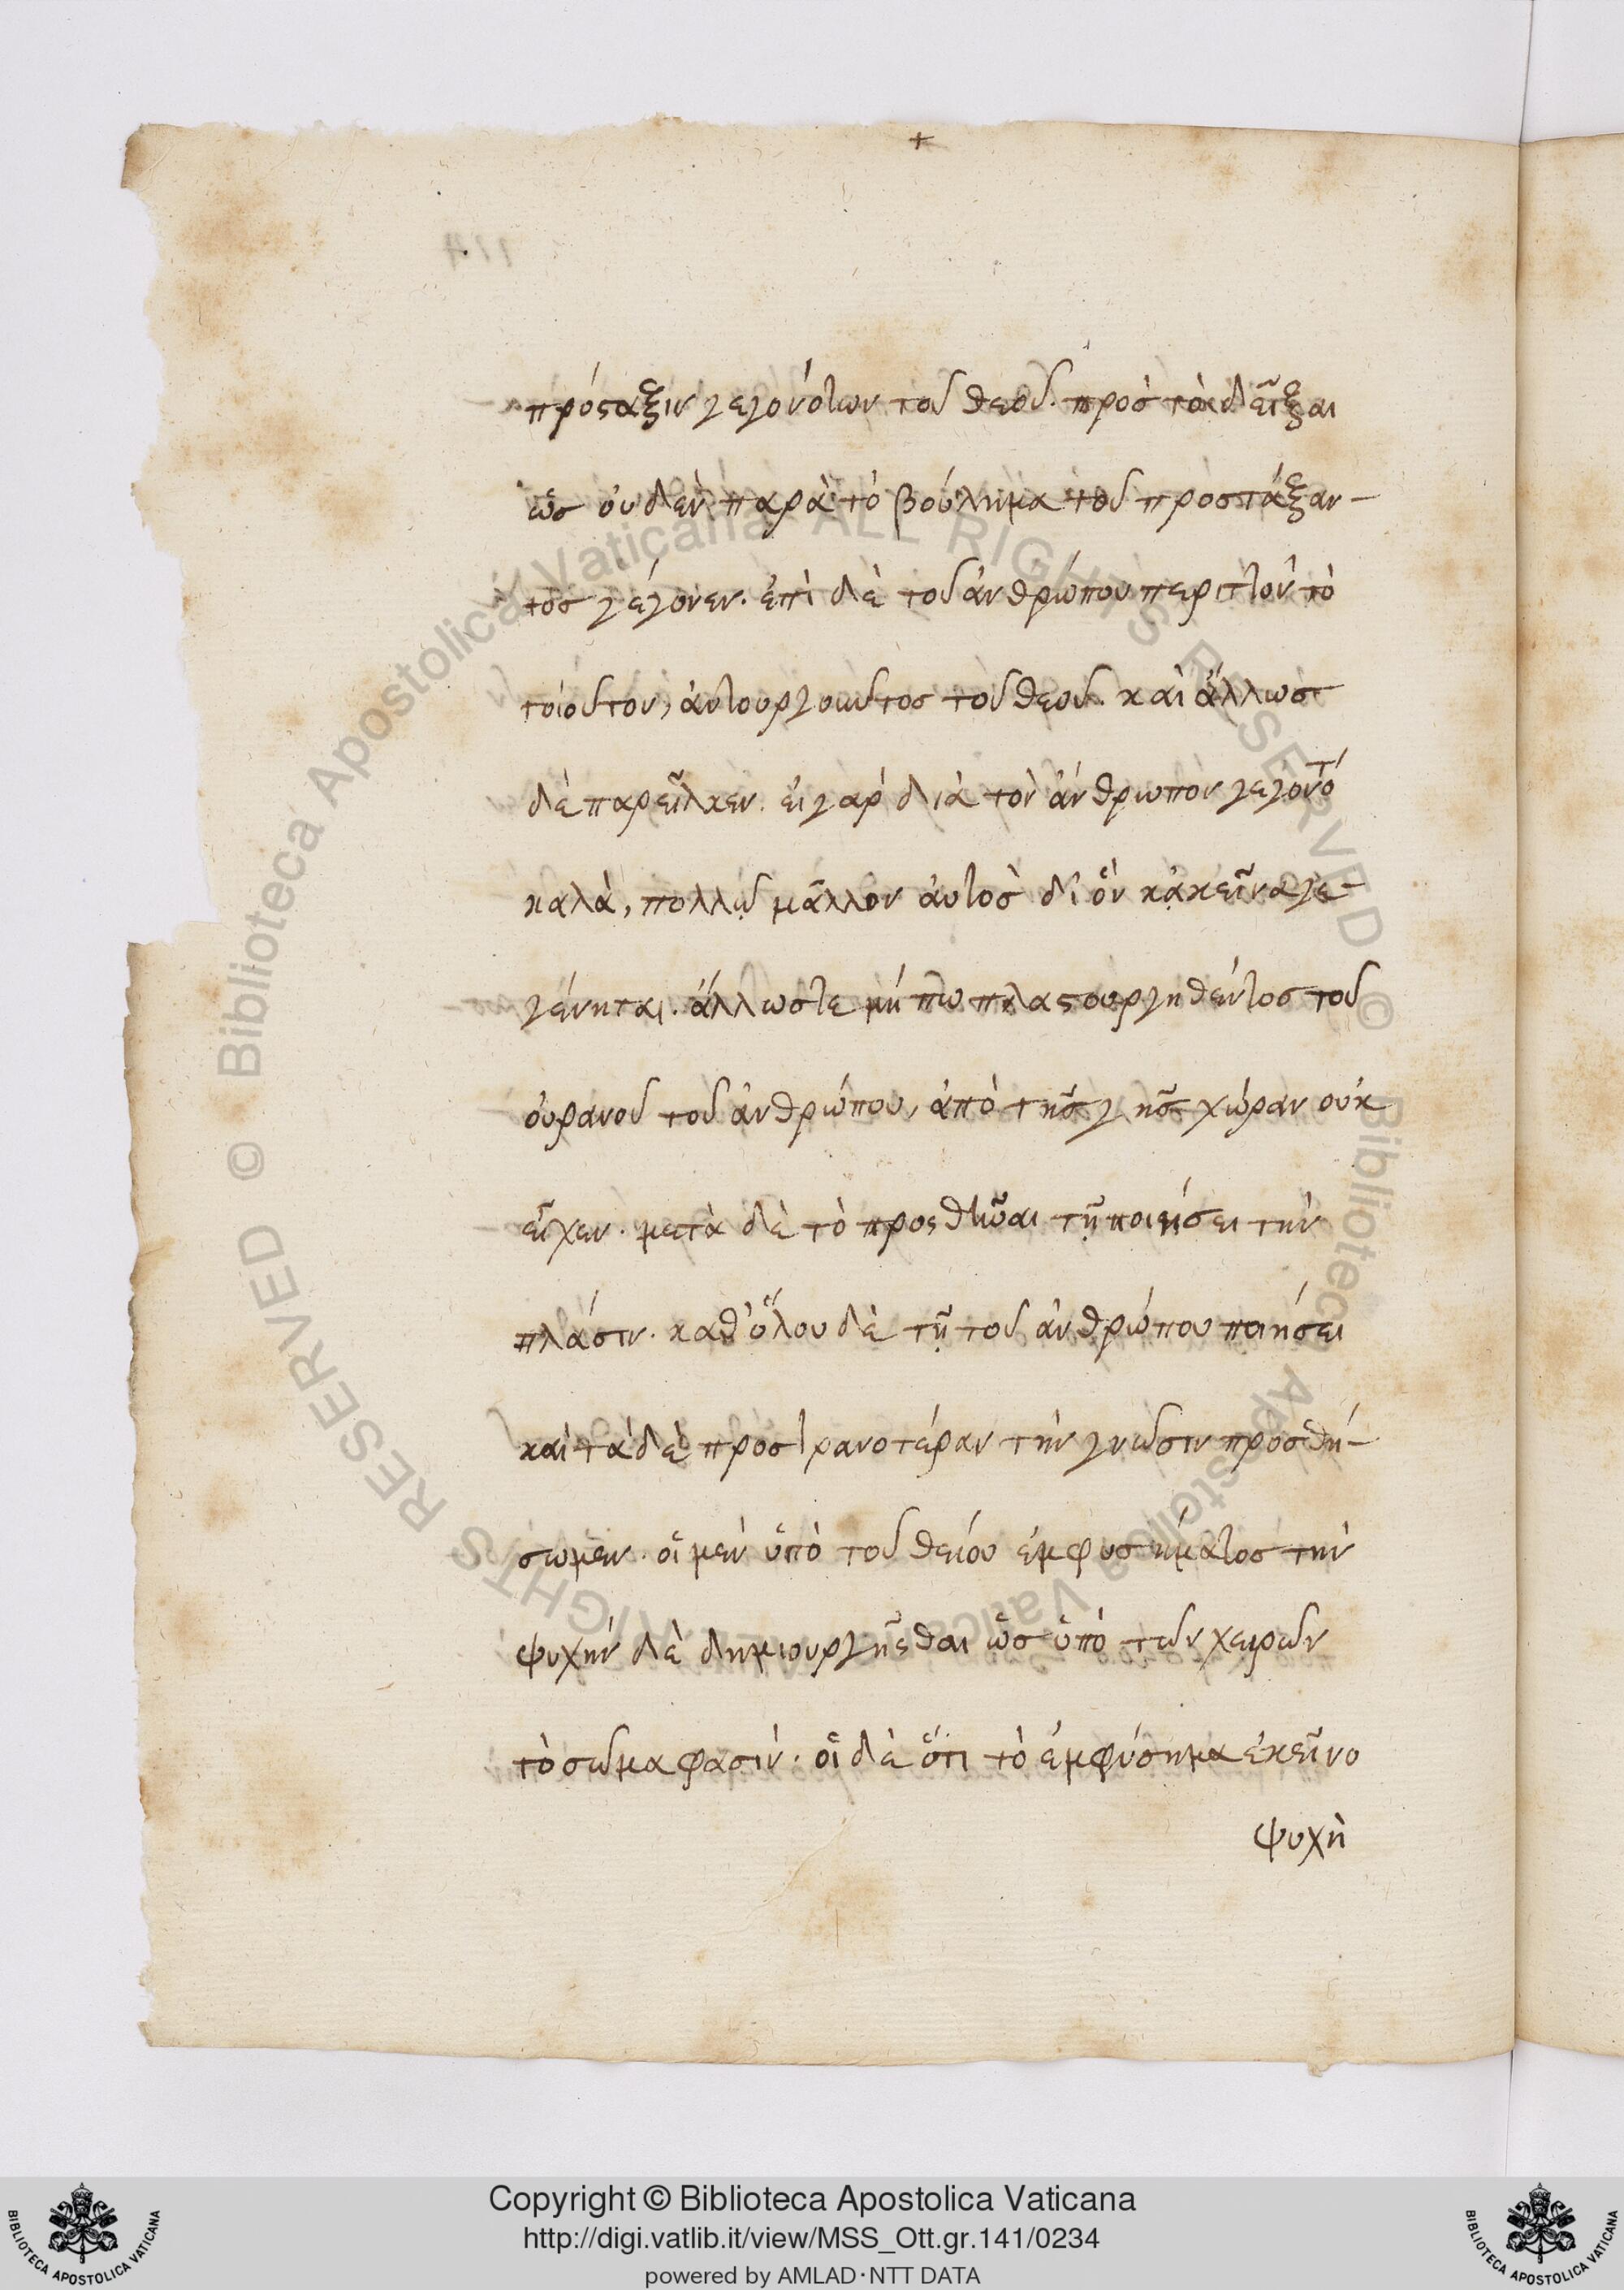 +
πρόσταξιν γεγονότων τοῦ θεοῦ. πρὸς τὸ δεῖξαι
ὡς οὐδὲν παρὰ τὸ βούλημα τοῦ προστάξαν-
τος γέγονεν. ἐπὶ δὲ τοῦ ἀνθρώπου περιττὸν τὸ
τοιοῦτον, αὐτουργοῦντος τοῦ θεοῦ. καὶ ἄλλως τε
δὲ παρεῖλκεν. εἰ γὰρ διὰ τὸν ἄνθρωπον γέγονε
καλὰ, πολλῷ μᾶλλον αὐτὸς δι ὃν κἀκεῖνα γε-
γένηται. ἄλλωστε μήπω πλαστουργηθέντος τοῦ
οὐρανοῦ τοῦ ἀνθρώπου, ἀπὸ τῆς γῆς χώραν οὐκ
εἶχεν. μετὰ δὲ τὸ προσθεῖναι τῇ ποιήσει τὴν
πλάσιν. καθ' ὅλου δὲ τῇ τοῦ ἀνθρώπου ποιήσει
καὶ τάδε πρὸς τρανοτέραν τὴν γνῶσιν προσθή-
σωμεν. οἱ μὲν ὑπὸ τοῦ θείου ἐμφυσήματος τὴν
ψυχὴν δὲ δημιουργῆσθαι ὡς ὑπὸ τῶν χειρῶν
τὸ σῶμα φασίν. οἱ δὲ ὅτι τὸ ἐμφύσημα ἐκεῖνο
ψυχὴ
© Biblioteca Apostolica Vaticana ALL RIGHTS RESERVED © Biblioteca Apostolica Vaticana ALL RIGHTS RESERVED
Copyright © Biblioteca Apostolica Vaticana
http://digi.vatlib.it/view/MSS_Ott.gr.141/0234
powered by AMLAD·NTT DATA
BIBLIOTECA APOSTOLICA VATICANA
BIBLIOTECA APOSTOLICA VATICANA